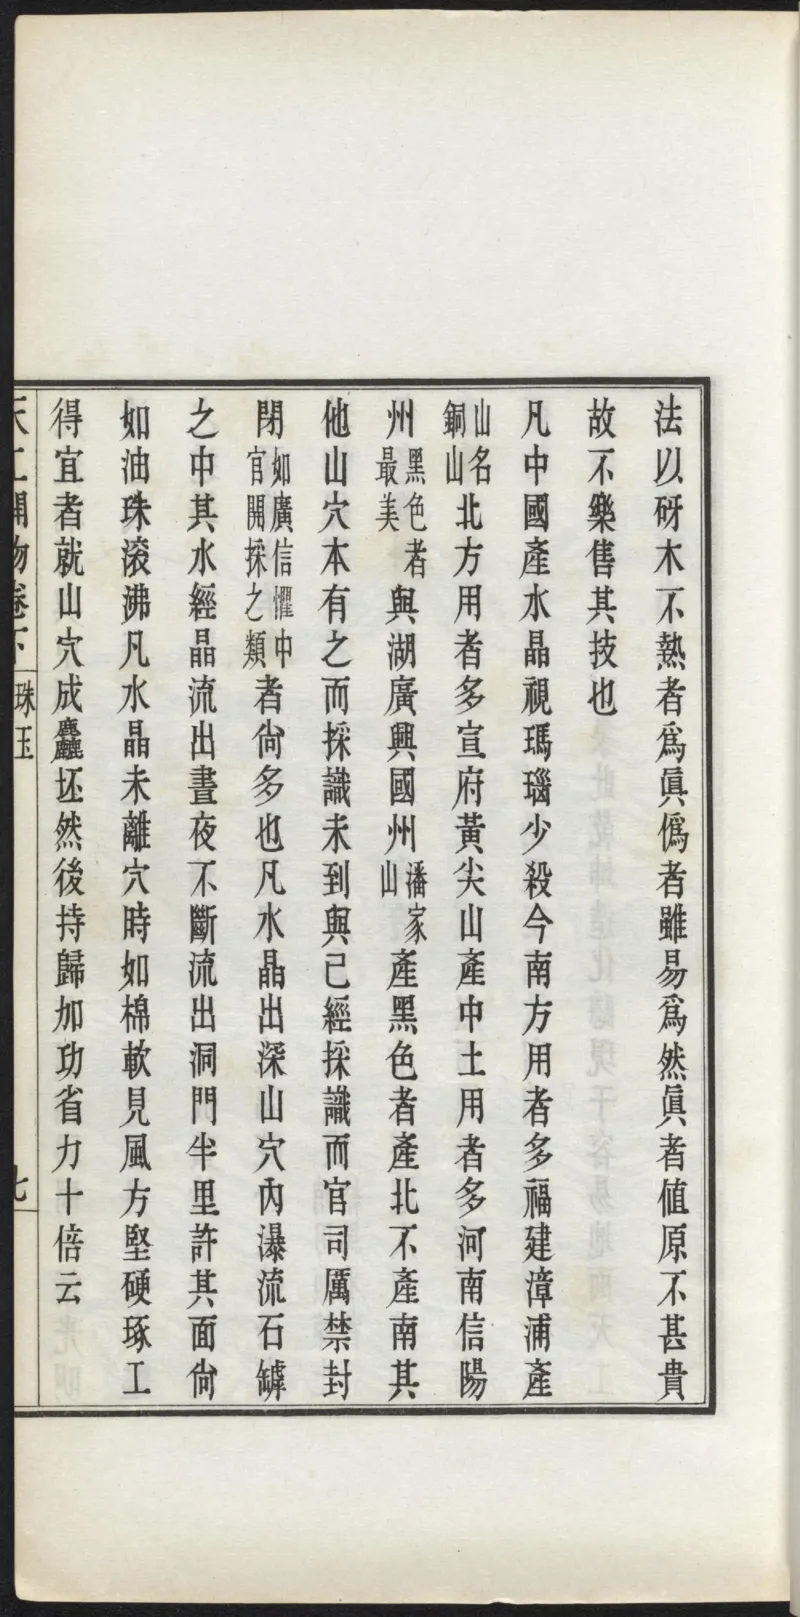 法以砑木不熱者爲眞僞者雖易爲然眞者値原不甚貴
故不樂售其技也
凡中國產水晶視瑪瑙少殺今南方用者多福建漳浦產
山名銅山北方用者多宣府黃尖山產中土用者多河南信陽
州黑色者最美與湖廣興國州潘家山產黑色者產北不產南其
他山穴本有之而採識未到與已經採識而官司厲禁封
閉如廣信懼中官開採之類者尙多也凡水晶出深山穴內瀑流石罅
之中其水經晶流出晝夜不斷流出洞門半里許其面尙
如油珠滾沸凡水晶未離穴時如棉軟見風方堅硬琢工
得宜者就山穴成麤坯然後持歸加功省力十倍云
天工開物卷下 珠玉 七